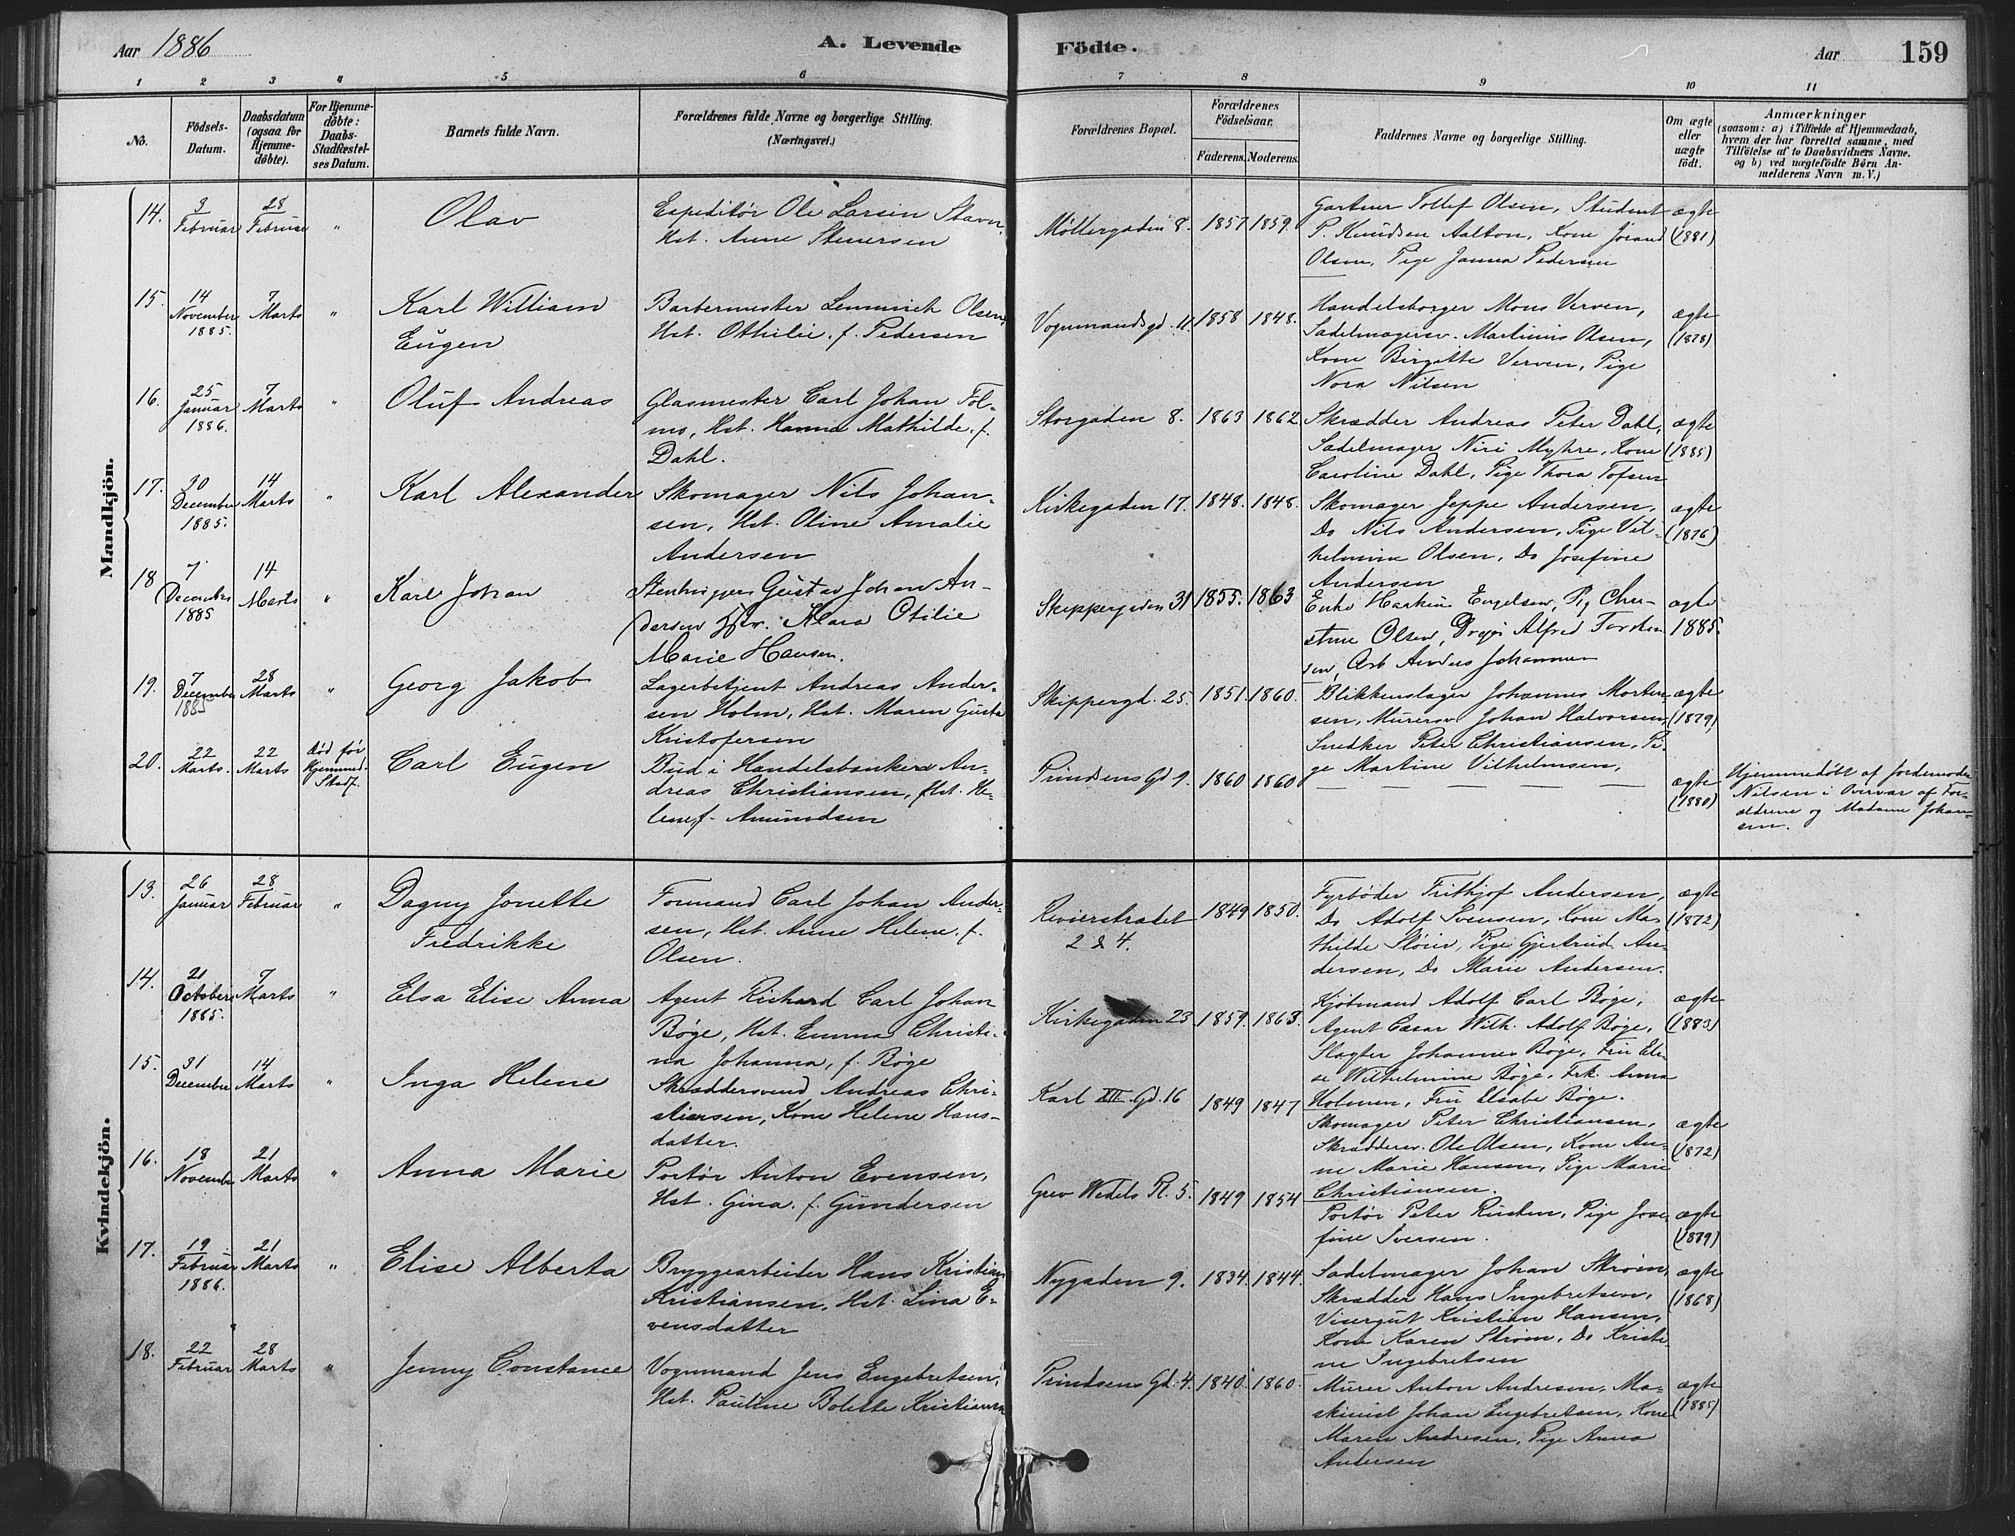 Aar 1886
A. Levende Födte.
Aar
159
1 2 3 4 5 6 7 8 9 10 11
No.
Födsels-
Datum.
Daabsdatum
(ogsaa for
Hjemme-
døbte).
For Hjemme-
døbte:
Daabs-
Stadfæstel-
ses Datum.
Barnets fulde Navn.
Forældrenes fulde Navne og borgerlige Stilling.
(Næringsvei.)
Forældrenes Bopæl.
Forældrenes
Födselsaar.
Faderens. Moderens.
Faddernes Navne og borgerlige Stilling.
Om ægte
eller
uægte
födt.
Anmærkninger
(saasom: a) i Tilfælde af Hjemmedaab,
hvem der har forrettet samme, med
Tilföielse af to Daabsvidners Navne.
og b) ved uægtefödte Børn An-
melderens Navn m. V.)
Mandkjön.
14. 3 Februar 28 Februar " Olav
Expeditør Ole Larsen Stavn,
Hst. Anne Stenersen
Møllergaden 8. 1857 1859.
Gartner Tollef Olsen, Student
P. Knudsen Aalton, Kone Jorand
Olsen, Pige Janna Pedersen
ægte
(1881)
15. 14 November 1885. 7 Marts " Karl William
Eugen
Barbermester Lemmich Olsen,
Hst. Othilie f. Pedersen
Vognmandsgd. 11 1858 1848.
Handelsborger Mons Verven,
Sadelmagersv. Martinius Olsen,
Kone Birgitte Verven, Pige
Nora Nilsen
ægte
(1878)
16. 25 Januar 1886. 7 Marts " Oluf Andreas
Glasmester Carl Johan Tol-
mo, Hst. Hanna Mathilde f.
Dahl.
Storgaden 8. 1863 1862
Skrædder Andreas Peter Dahl,
Sadelmager Niri Myhre, Kone
Caroline Dahl, Pige Thora Tofsen
ægte
(1885)
17. 30 December 1885. 14 Marts " Karl Alexander
Skomager Nils Johan-
sen, Hst. Oline Amalie
Andersen
Kirkegaden 17. 1848. 1848.
Skomager Jeppe Andersen,
Do Nils Andersen, Pige Vil-
helmine Olsen, Do Josefine
Andersen
ægte
(1876)
18 7 December 1885 14 Marts " Karl Johan
Stenhugger Gustav Johan An-
dersen Hstr. Klara Otilie
Marie Hansen.
Skippergaden 31 1855. 1863
Enke Engelsen, Pig Chri-
stine Olsen, Alfred Torsten
sen, Arb Anders Johannesen
ægte
1885.
19. 7 December 1885 28 Marts " Georg Jakob
Lagerbetjent Andreas Ander-
sen Holm, Hst. Maren Gusta
Kristofersen
Skippergd. 25. 1851. 1860.
Blikkenslager Johannes Morten-
sen, Murersv Johan Halvorsen,
Snedker Peter Christiansen, Pi-
ge Martine Vilhelmsen,
ægte
(1879)
20. 22 Marts. 22 Marts død før Hjemmed. Stadf. Carl Eugen
Bud i Handelsbanken An-
dreas Christiansen, Hst. He-
lene f. Amundsen
Prindsens Gd 9. 1860 1860
— — — — —
ægte
(1880)
Hjemmedøbt af Jordemoder
Nilsen i Overvær af For-
ældrene og Madame Johan-
sen.
Kvindekjön.
13. 26 Januar 28 Februar " Dagny Jonette
Fredrikke
Formand Carl Johan Ander-
sen, Hst. Anne Helene f.
Olsen.
Revierstrædet
2 & 4.
1849 1850.
Fyrbøder Frithjof Andersen,
Do Adolf Svensen, Kone Ma-
thilde Støren, Pige Gjertrud An-
dersen, Do Marie Andersen.
ægte
(1872)
14. 21 October 1885. 7 Marts " Elsa Elise Anna
Agent Richard Carl Johan
Bøge, Hst. Emma Christi-
na Johanna, f. Bøge
Kirkegaden 23 1859. 1863.
Kjøbmand Adolf Carl Bøge,
Agent Cæsar Wilh. Adolf Bøge,
Slagter Johannes Bøge, Fru Eli-
se Wilhelmine Bøge, Frk. Anna
Holmen, Fru Elsabe Bøge.
ægte
(1883)
15. 31 December 14 Marts " Inga Helene
Skræddersvend Andreas Chri-
stiansen, Kone Helene Hans-
datter.
Karl XII. Gd. 16 1849 1847
Skomager Peter Christiansen,
Skræddersv. Ole Olsen, Kone An-
ne Marie Hansen, Pige Marie
Christiansen.
ægte
(1872)
16. 18 November 21 Marts " Anna Marie
Portør Anton Evensen,
Hst. Gina f. Gundersen
Grev Wedels Pl. 5. 1849 1854
Portør Peter Rusten, Pige Jose-
fine Iversen.
ægte
(1879)
17. 19 Februar 1886. 21 Marts " Elise Alberta
Bryggearbeider Hans Kristian
Kristiansen, Hst. Lina E-
vensdatter
Nygaden 9. 1834. 1844.
Sadelmager Johan Strøm,
Skrædder Hans Ingebretsen,
Visergut Kristian Hansen,
Kone Karen Strøm, Do Kristi-
ne Ingebretsen
ægte
(1868)
18. 22 Februar 28 Marts " Jenny Constance
Vognmand Jens Engebretsen,
Hst. Pauline Bolette Kristiansen
Prindsens Gd. 4. 1840. 1860.
Murer Anton Andresen, Ma-
skinist Johan Engebretsen, Kone
Maren Andresen, Pige Anna
Andersen
ægte
(1885)